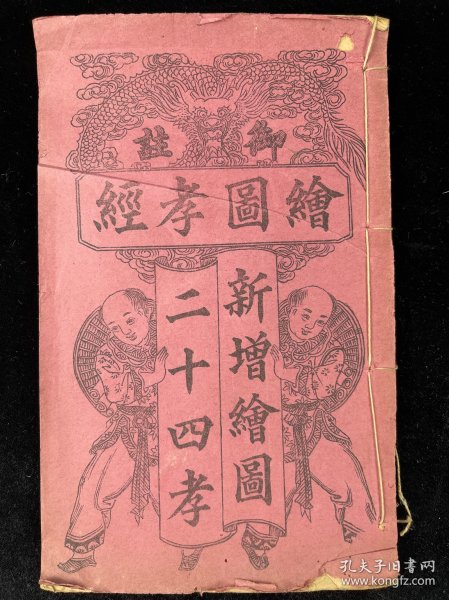 御註
繪圖孝經
新增繪圖
二十四孝
孔夫子旧书网
www.kongfz.com